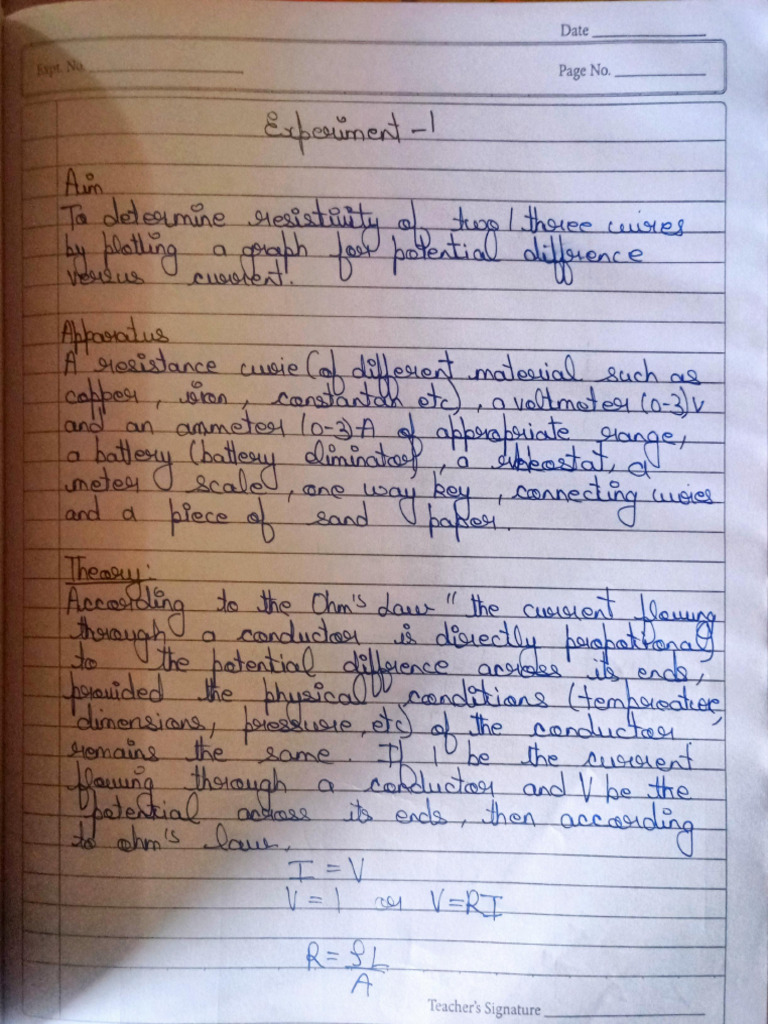 Date
Expt. No.
Page No.
Experiment - 1
Aim
To determine resistivity of two / three wires
by plotting a graph for potential difference
versus current.
Apparatus
A resistance wire (of different material such as
copper, iron, constantan etc), a voltmeter (0-3)V
and an ammeter (0-3)A of appropriate range,
a battery (battery eliminator), a rheostat, a
meter scale, one way key, connecting wires
and a piece of sand paper.
Theory:
According to the Ohm's Law "the current flowing
through a conductor is directly propotional
to the potential difference across its ends,
provided the physical conditions (tempreature,
dimensions, pressure, etc) of the conductor
remains the same. If I be the current
flowing through a conductor and V be the
potential across its ends, then according
to ohm's law,
I = V
V = I or V=RI
R = ρL
A
Teacher's Signature